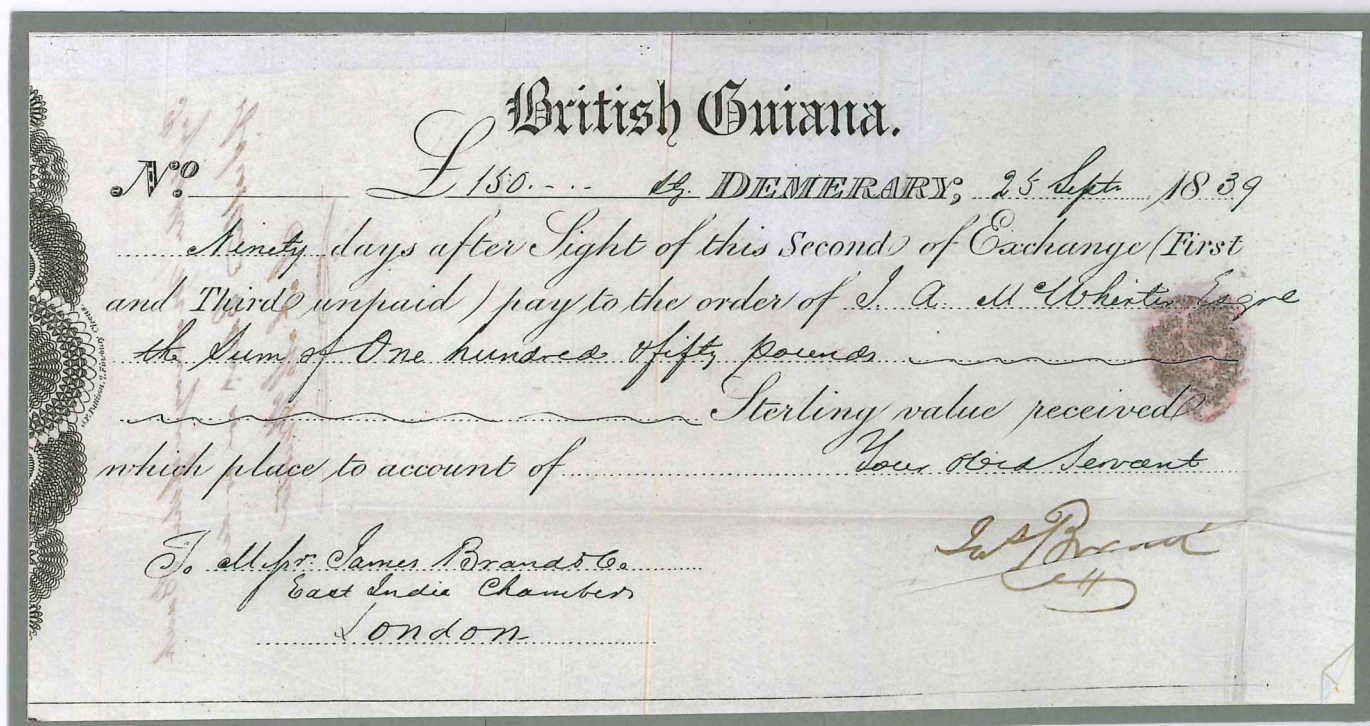 British Guiana.
No. £ 150.... Stg. DEMERARY, 25 Septr. 1839
Ninety days after Sight of this Second of Exchange (First
and Third unpaid) pay to the order of J. A. McWhirter Esqre
the Sum of One hundred & fifty pounds
Sterling value received
which place to account of Your obed Servant
To Messr. James Brand & Co.
East India Chambers
London
Jas Brand